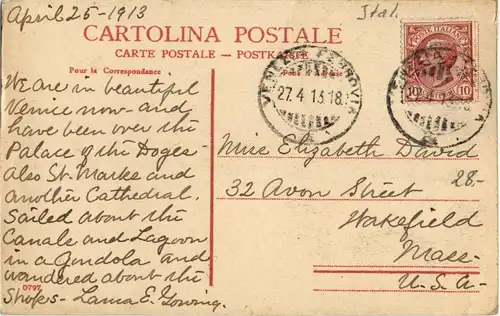 April 25-1913
Ital
CARTOLINA POSTALE
CARTE POSTALE — POSTKARTE
Pour la Correspondance
POSTE ITALIANE
10 10
VENEZIA FERROVIA
27.4 13 18
We are in beautiful
Venice now - and
have been over the
Palace of the Doges -
Also St. Marks and
another Cathedral.
Sailed about the
Canals and Lagoon
in a Gondola and
wandered about the
Shops - Laura E. Gowing.
Miss Elizabeth David
32 Avon Street
28 -
Wakefield
Mass -
U.S.A -
0797